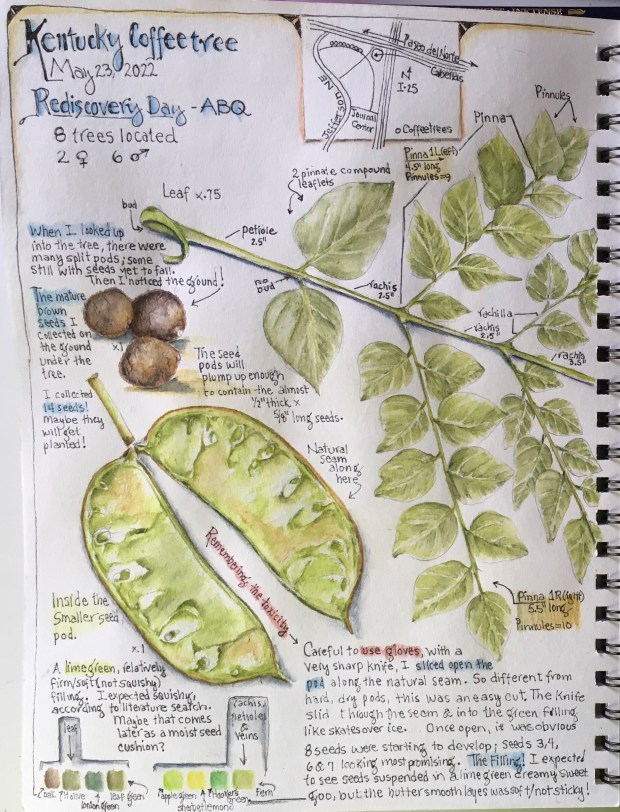 INTENSE
Kentucky Coffeetree
May 23, 2022
Rediscovery Day - ABQ
8 trees located
2 ♀ 6 ♂
Paseo del Norte
Cabellas
N
I-25
Jefferson NE
Journal
Center
o Coffeetrees
Pinnules
Pinna
Pinna 1L(eft)
4.5" long
Pinnules = 9
2 pinnate compound
leaflets
Leaf x.75
bud
petiole
2.5"
no
bud
rachis
2.5"
rachilla
rachis
2.5"
rachis
3.5"
When I looked up
into the tree, there were
many split pods; some
still with seeds yet to fall.
Then I noticed the ground!
The mature
brown
seeds I
collected on
the ground
under the
tree.
x1
I collected
14 seeds!
Maybe they
will get
planted!
The seed
pods will
plump up enough
to contain the almost
1/2" thick x
5/8" long seeds.
Natural
seam
along
here
Remembering the toxicity
Inside the
smaller seed
pod.
x.1
Pinna 1R(ight)
5.5" long
Pinnules = 10
A lime green, relatively
firm/soft (not squishy)
filling. I expected squishy,
according to literature search.
Maybe that comes
later as a moist seed
cushion?
Careful to use gloves, with a
very sharp knife, I sliced open the
pod along the natural seam. So different from
hard, dry pods, this was an easy cut. The knife
slid through the seam & into the green filling
like skates over ice. Once open, it was obvious
8 seeds were starting to develop; seeds 3, 4,
6 & 7 looking most promising. The Filling! I expected
to see seeds suspended in a lime green creamy, sweet
goo, but the butter smooth layer was soft/not sticky!
leaf
rachis,
petioles
&
veins
olive
leaf green
apple green
sherbet lemon
Hookers
green
Fern